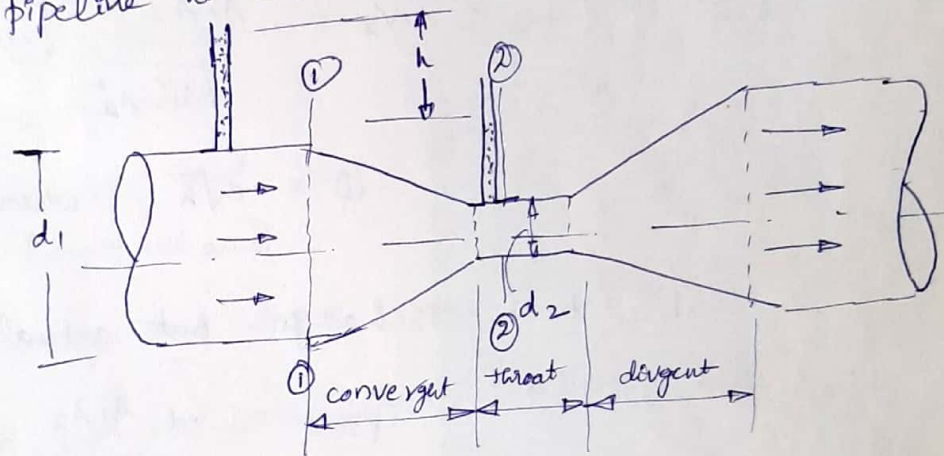 pipeline
h
①
②
d1
d2
②
①
convergent
throat
divgent